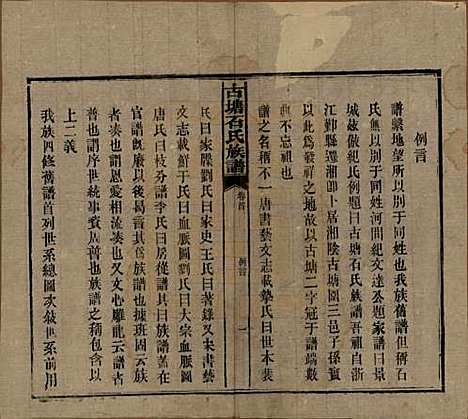 例言
譜繫地望所以別于同姓也我族舊譜但稱石
氏無以別于同姓河間紀文達公題家譜曰景
城茲倣紀氏例題曰古塘石氏族譜吾祖自浙
江鄞縣遊湘卽卜居湘陰古塘圍三邑子孫實
以此為發祥之地故以古塘二字冠于譜端數
典不忘祖也
譜之名稱不一唐書藝文志載摯氏曰世本裴
古塘石氏族譜
卷首
例言
一
氏曰家牒劉氏曰家史王氏曰著錄宋書藝
文志載鮮于氏曰血脈圖劉氏曰大宗血脈
圖又曰行年記分譜李氏曰房從譜其曰族譜蓋在
官譜既廢以後曷言其為族譜也據班固云族
者湊也謂恩愛相流湊也又文心雕龍云譜者
普也謂序世統事資周普也族譜之稱包含
上二義
我族四修舊譜首列世系總圖次敘世系前用